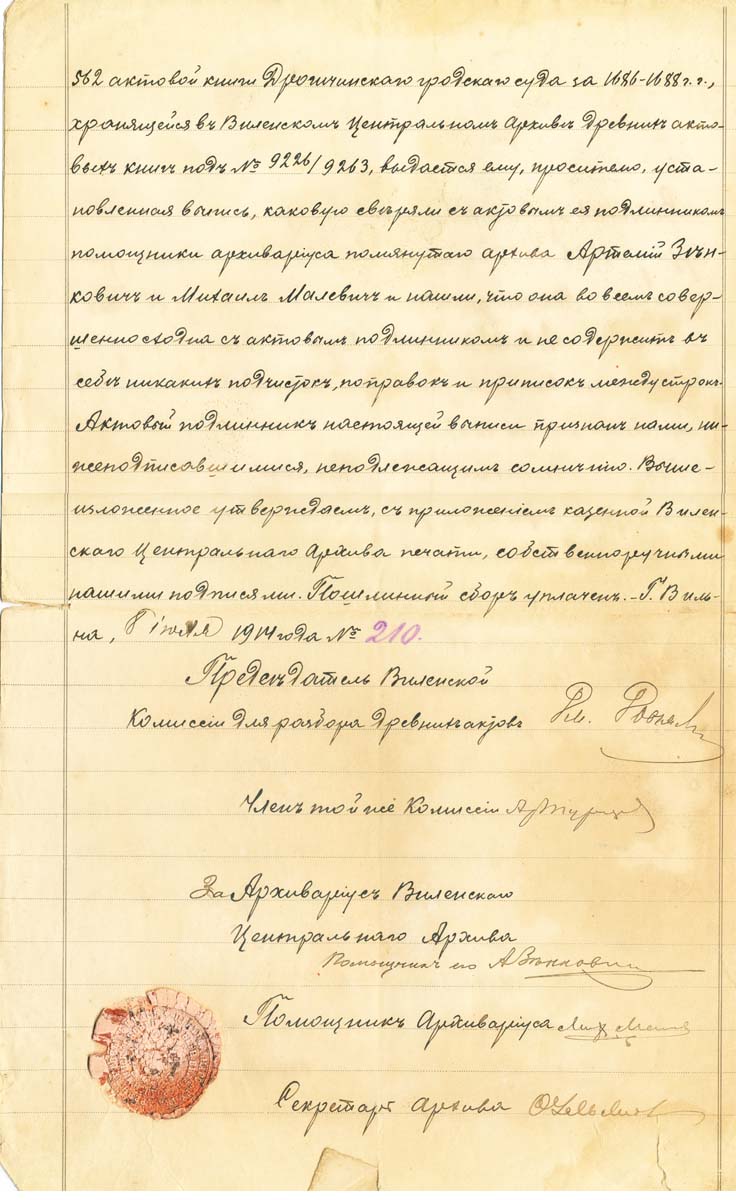 562 актовой книги Дрогичинскаго гродскаго суда за 1686-1688 г.г.,
хранящейся въ Виленскомъ Центральномъ Архивѣ древнихъ акто-
выхъ книгъ подъ № 9226/9263, выдается ему, просителю, уста-
новленная выпись, каковую свѣряли съ актовымъ ея подлинникомъ
помощники архиваріуса помянутаго архива Артемій Зѣн-
ковичъ и Михаилъ Малевичъ и нашли, что она во всемъ совер-
шенно сходна съ актовымъ подлинникомъ и не содержитъ въ
себѣ никакихъ подчистокъ, поправокъ и приписокъ между строкъ.
Актовый подлинникъ настоящей выписи признанъ нами, ни-
жеподписавшимися, неподлежащимъ сомнѣнію. Выше-
изложенное утверждаемъ, съ приложеніемъ казенной Вилен-
скаго Центральнаго Архива печати, собственноручными
нашими подписями. Пошлинный сборъ уплаченъ. - Г. Виль-
на, 8 іюля 1914 года № 210.
Предсѣдатель Виленской
Комиссіи для разбора древнихъ актовъ
Членъ той же Комиссіи
За Архиваріусъ Виленскаго
Центральнаго Архива
Помощникъ его
Помощникъ Архиваріуса
Секретарь Архива